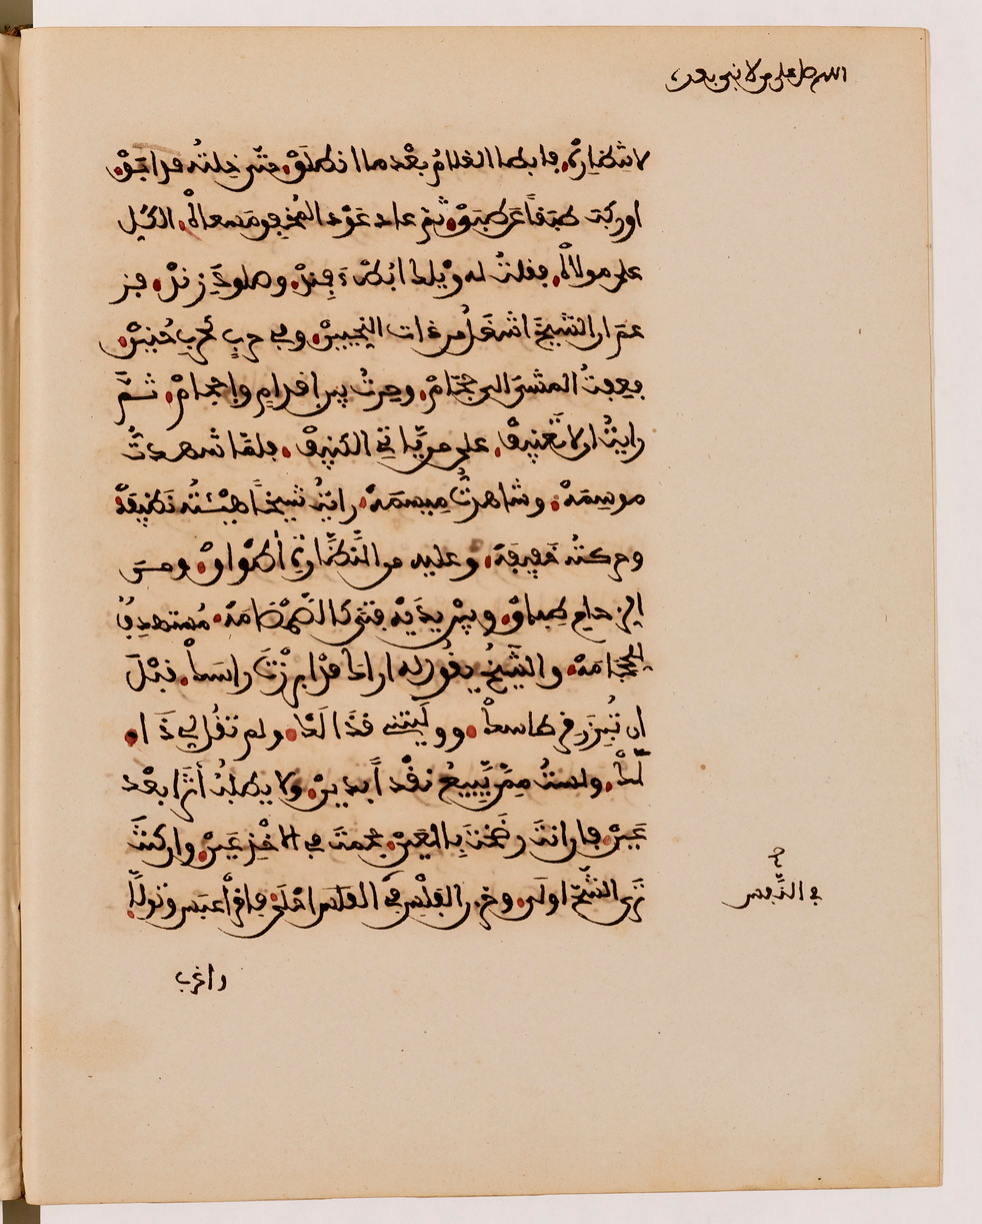 اللهم صل على من لا نبي بعده
لانتظارهْ، فابطا الغلامُ بعْدما انطلقْ، حتى خِلتُه قد ابَقْ،
او ركبَ طبَقاً عَن طبَقْ، ثم عاد عَوْدَ المُخفِقِ مَسعاهْ، الكَلِّ
على مولاهْ، فقلتُ له ويْلك ابُطْءَ فِنْدْ، وصلودَ زنْدْ، فز
عم ان الشيخَ اشغَلُ من ذات النِّحييْنْ، وفي حربٍ كحربِ حُنيْنْ،
فعِفتُ الممشَى الى حجّامْ، وحِرتُ بين إقدامٍ وإحجامْ، ثمَّ
رايتُ ان لا تَعنيفْ، على من ياتي الكنيفْ، فلمّا شهدتُّ
موسمَهْ، وشاهدتُّ مِيسمَهْ، رايتُ شيخاً هيْئتُه نظيفَهْ
وحركتُه خفيفَهْ، وعليه من النَّظَّارةِ أطْواقْ، ومن
الزحامِ طباقْ، وبيْن يدَيْهِ فتىً كالصَّمْصَامَهْ، مُستهدِفٌ
للحِجَامَهْ، والشَّيْخُ يقُول له اراك قدَ ابرزْتَ راسَكْ، قبْلَ
ان تُبْرِزَ قِرطاسكْ، ووليْتَنى قذَالَكْ، ولم تقُل لي ذَا
لَكْ، ولستُ مِمَّن يَّبِيعُ نقْداً بدينْ، ولا يطلُبُ أثرَاً بعْدَ
عَيْنْ، فإن انتَ رضَخْتَ بِالعَيْنْ، حجمتَ في الاخْدَعَيْنْ، وان كنتَ
ترَى الشُّحَّ اولَى، وخزن الفِلْسِ في الفلس احْلَى، فاقرأ عبَسَ وتَولَّى،
صح
في النَّفس
واغرب